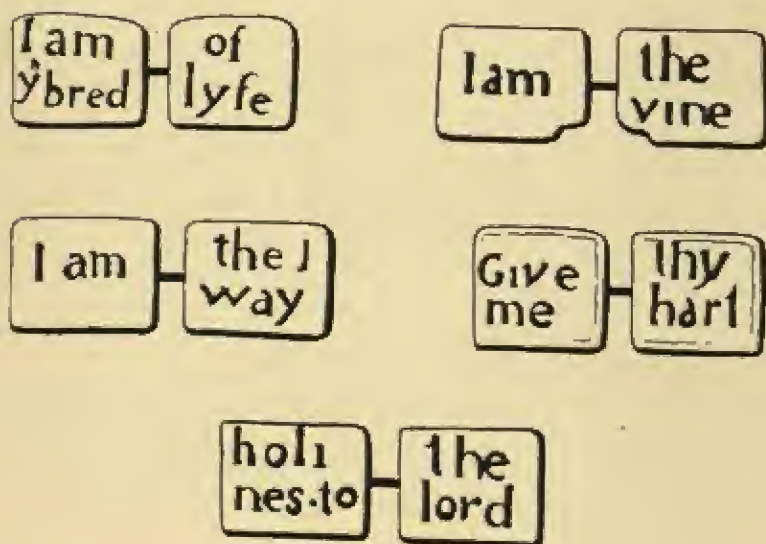 I am
yͤbred
of
lyfe
I am
the
vine
I am
the J
way
Give
me
thy
hart
holi
nes·to
the
lord